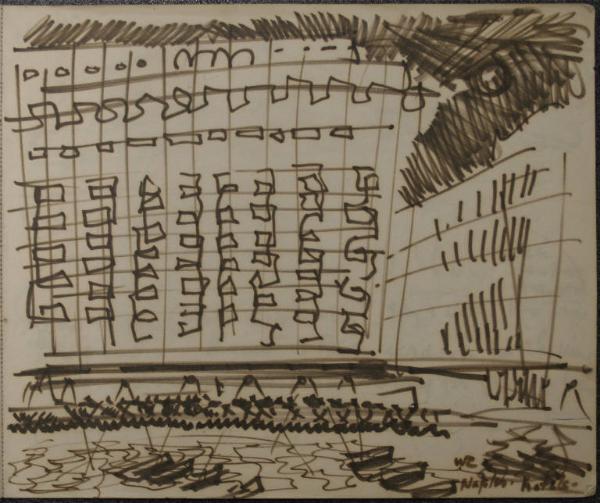 WR
Naples. hotels.